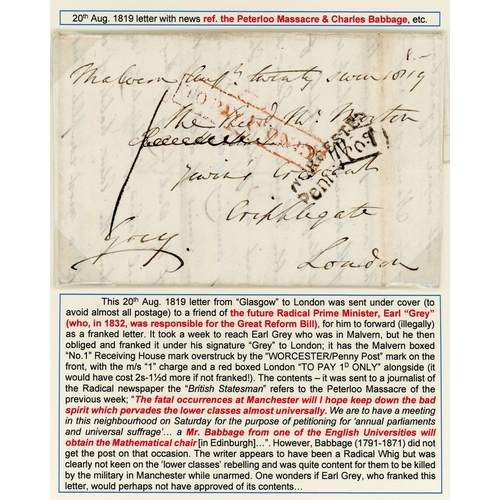 20th Aug. 1819 letter with news ref. the Peterloo Massacre & Charles Babbage, etc.
Malvern Augt. twenty seven 1819
The Revd. Ths.
TO PAY 1D ONLY
WORCESTER
Penny
No. 1
1
Cripplegate
Grey
London
This 20th Aug. 1819 letter from “Glasgow” to London was sent under cover (to
avoid almost all postage) to a friend of the future Radical Prime Minister, Earl “Grey”
(who, in 1832, was responsible for the Great Reform Bill), for him to forward (illegally)
as a franked letter. It took a week to reach Earl Grey who was in Malvern, but he then
obliged and franked it under his signature “Grey” to London; it has the Malvern boxed
“No.1” Receiving House mark overstruck by the “WORCESTER/Penny Post” mark on
the front, with the m/s “1” charge and a red boxed London “TO PAY 1D ONLY” alongside (it
would have cost 2s-1½d more if not franked!). The contents – it was sent to a journalist of
the Radical newspaper the “British Statesman” refers to the Peterloo Massacre of the
previous week; “The fatal occurrences at Manchester will I hope keep down the bad
spirit which pervades the lower classes almost universally. We are to have a meeting
in this neighbourhood on Saturday for the purpose of petitioning for ‘annual parliaments
and universal suffrage’... a Mr. Babbage from one of the English Universities will
obtain the Mathematical chair [in Edinburgh]…”. However, Babbage (1791-1871) did not
get the post on that occasion. The writer appears to have been a Radical Whig but was
clearly not keen on the ‘lower classes’ rebelling and was quite content for them to be killed
by the military in Manchester while unarmed. One wonders if Earl Grey, who franked this
letter, would perhaps not have approved of its contents…